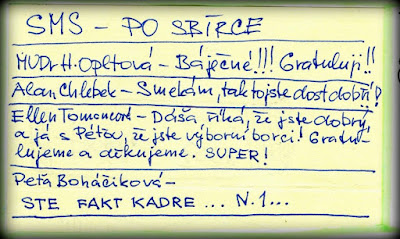 SMS – PO SBÍRCE
MUDr H. Opltová – Báječné!!! Gratuluji!!
Alan Chlebek – Smekám, tak to jste dost dobří!
Ellen – Dáša říká, že jste dobrý,
a já s Péťou, že jste výborní borci! Gratul-
ujeme a děkujeme. SUPER!
Peťa Boháčiková –
STE FAKT KADRE ... N.1...